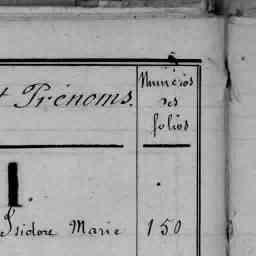 t Prénoms.
Numéros
des
folios
I.
Isidore Marie 150